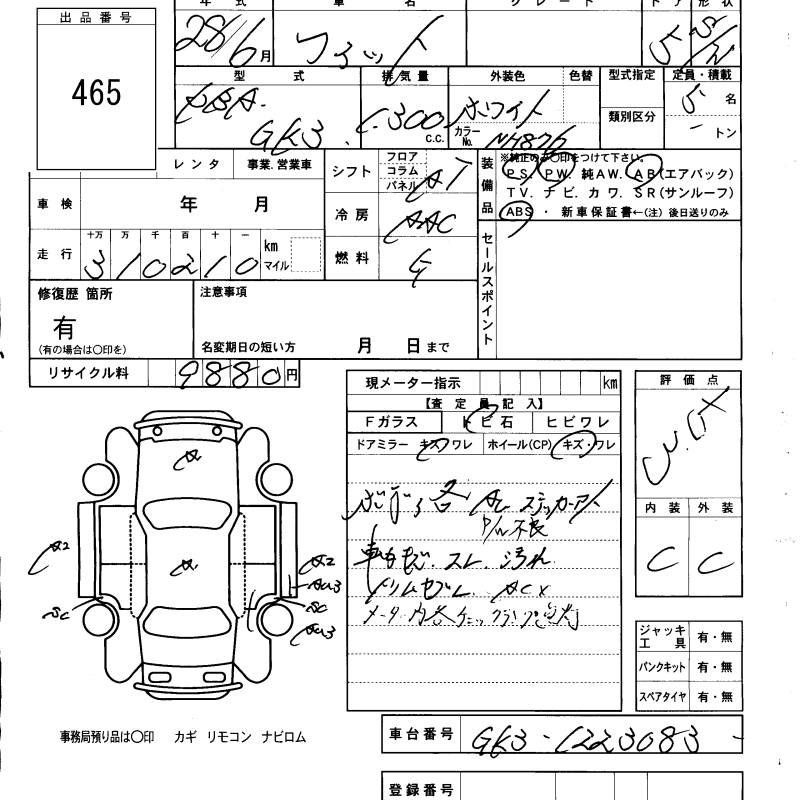 出品番号
465
年 式 車 名 グレード ドア 形状
28/6月 フィット 5 5/W
型 式 排気量 外装色 色替 型式指定 定員・積載
DBA- GK3 1300 c.c. ホワイト カラーNo. NH876 類別区分 5名 トン
レンタ 事業.営業車
シフト フロア コラム パネル AT
装備品 ※純正のみ○印をつけて下さい。
PS. PW. 純AW. AB(エアバック)
TV. ナビ. カワ. SR(サンルーフ)
ABS ・ 新車保証書←(注) 後日送りのみ
車検 年 月
冷房 AAC
走行 十万 万 千 百 十 一
310210 km マイル
燃料 G
セールスポイント
修復歴 箇所
有
(有の場合は○印を)
注意事項
名変期日の短い方 月 日まで
リサイクル料 9880円
現メーター指示 km
【査 定 員 記 入】
Fガラス トビ石 ヒビワレ
ドアミラー キズ・ワレ ホイール(CP) キズ・ワレ
評価点
内装 外装
C C
A
A2
A
A2
AU3
SC
SC
AU3
ボデー各 AU ステッカーアト
P/W不良
車内 スレ.汚れ
ACX
ジャッキ工具 有・無
パンクキット 有・無
スペアタイヤ 有・無
事務局預り品は○印 カギ リモコン ナビロム
車台番号 GK3-1223083
登録番号